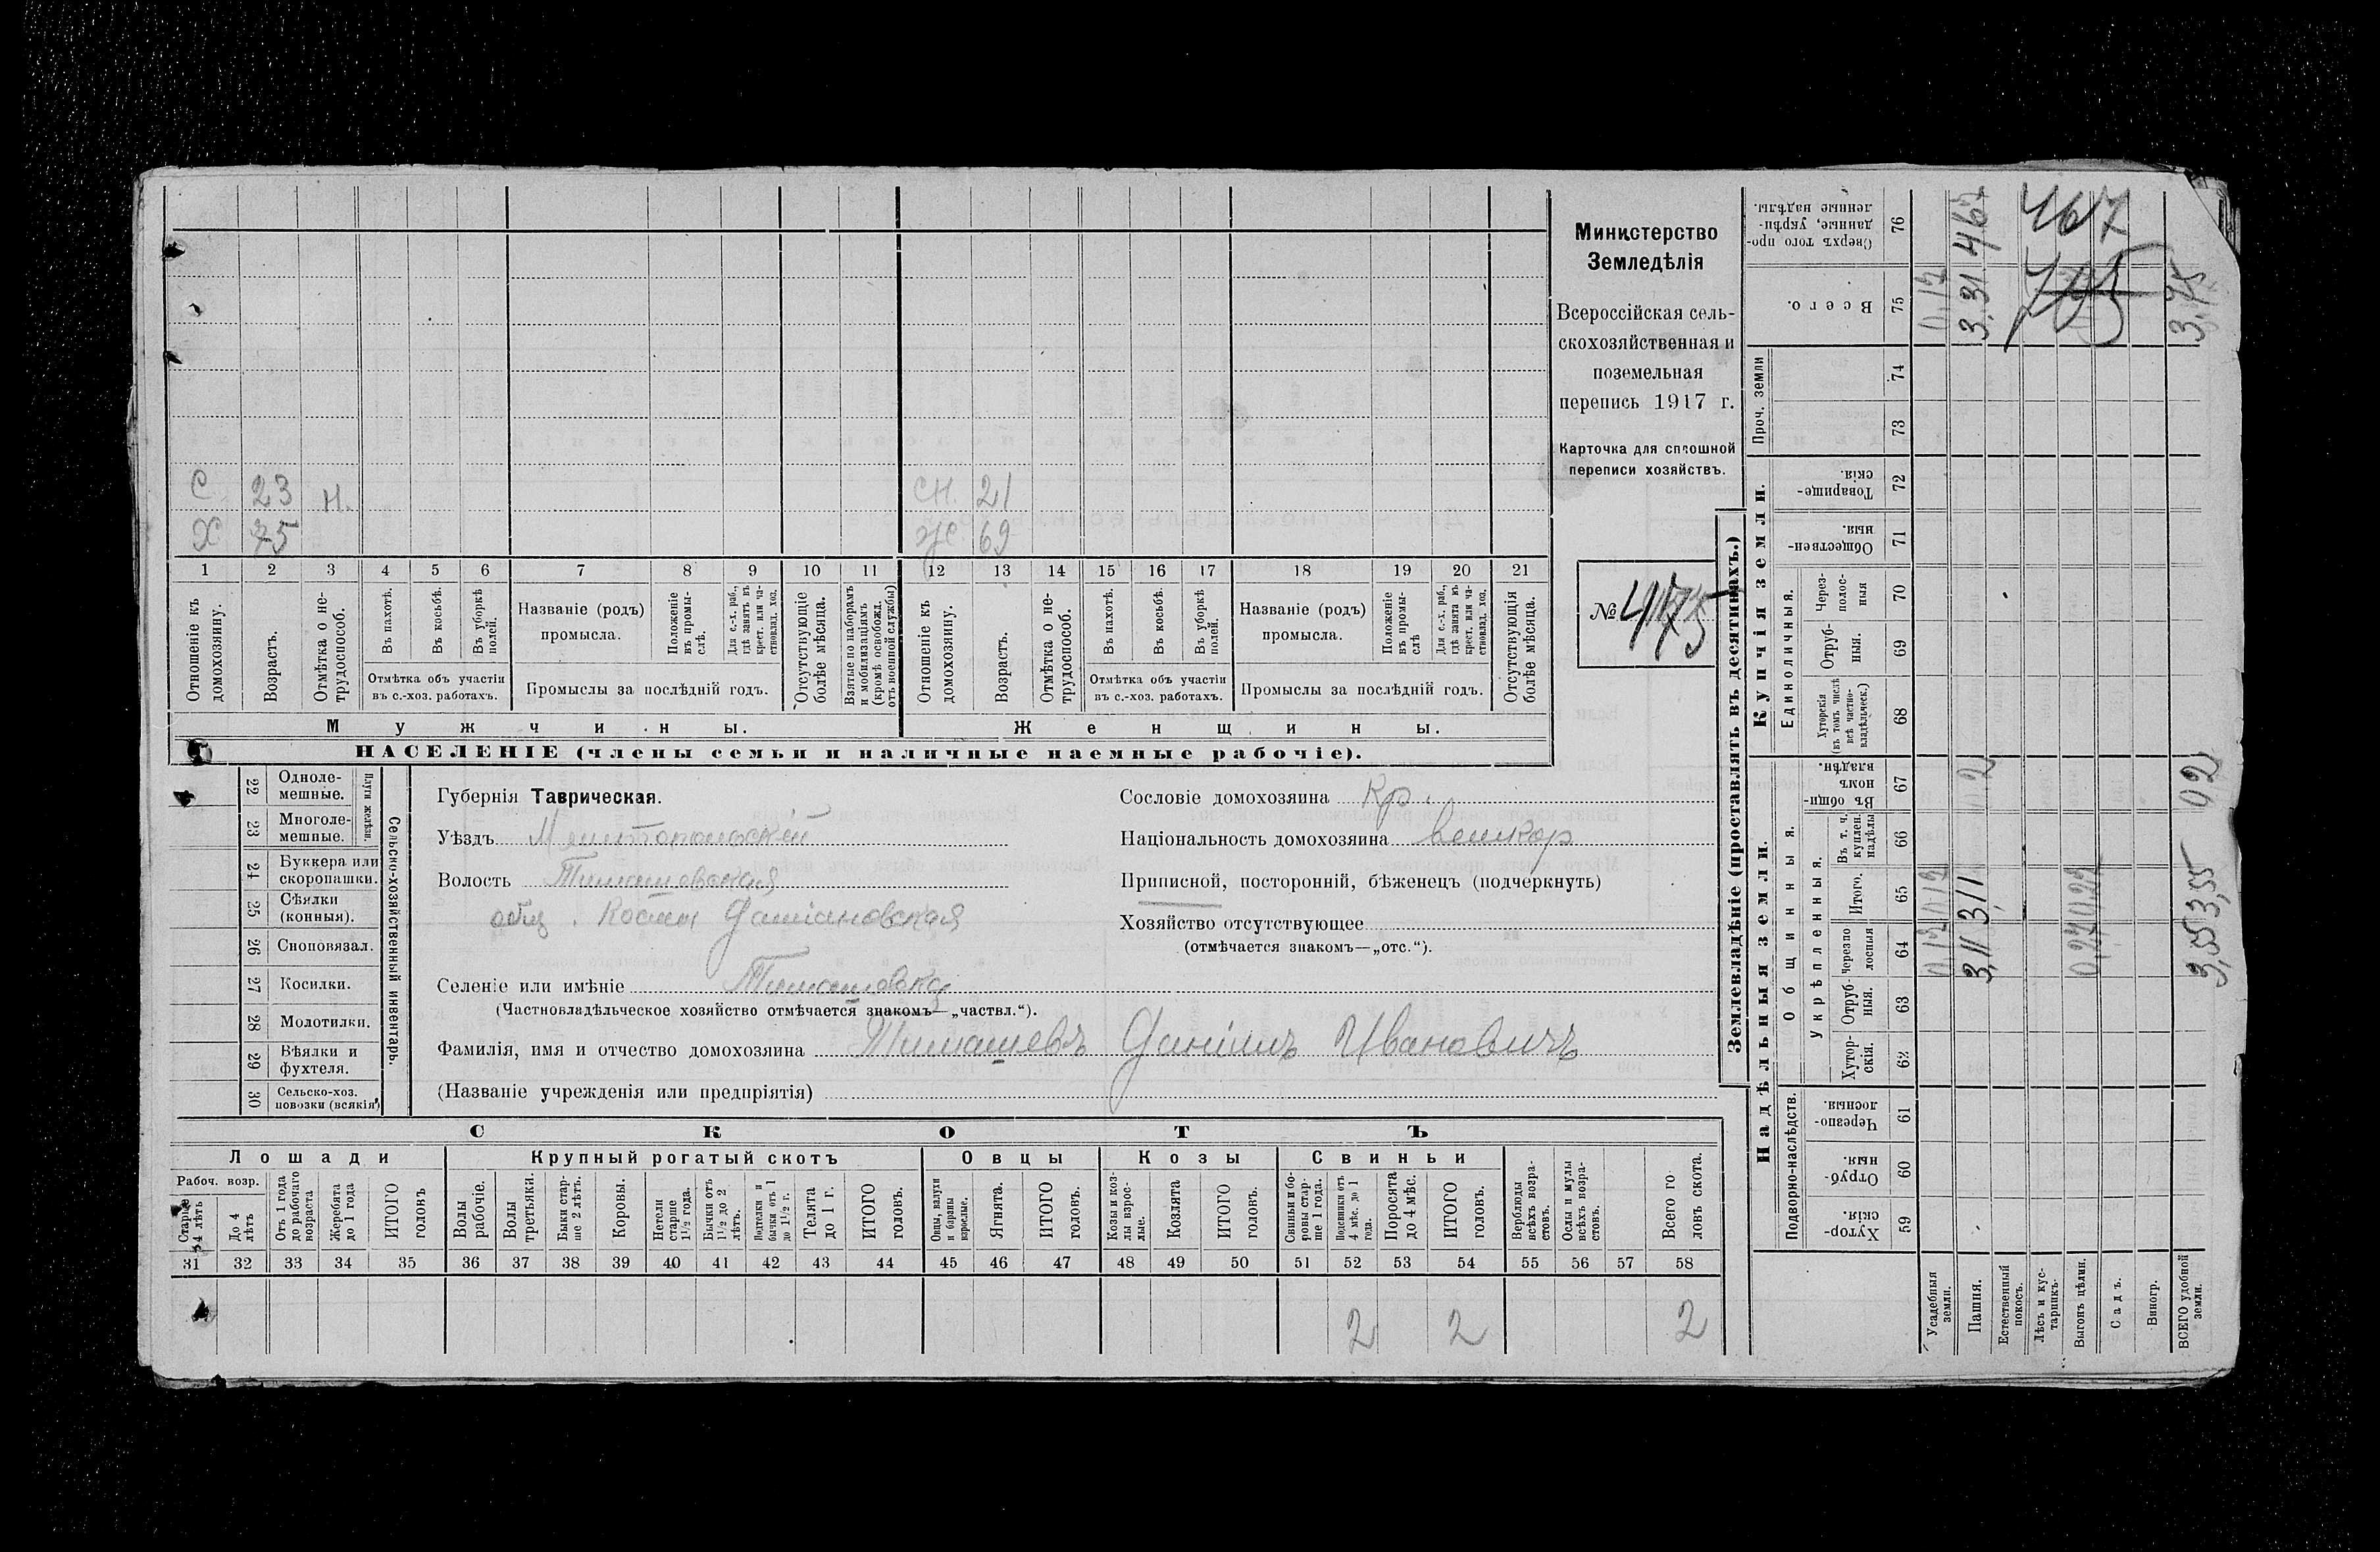 С 23 Н. СН. 21
Х 75 Ж 69
1 2 3 4 5 6 7 8 9 10 11 12 13 14 15 16 17 18 19 20 21
Отношеніе къ домохозяину.
Возрастъ.
Отмѣтка о не-трудоспособ.
Въ пахотѣ.
Въ косьбѣ.
Въ уборкѣ полей.
Отмѣтка объ участіи
въ с.-хоз. работахъ.
Названіе (родъ)
промысла.
Положеніе въ промы-слѣ.
Для с.-х. раб., гдѣ занятъ въ крест. или ча-стновлад. хоз.
Промыслы за послѣдній годъ.
Отсутствующіе болѣе мѣсяца.
Взятые по наборамъ и мобилизаціямъ (кромѣ освобожд. отъ военной службы)
Отношеніе къ домохозяину.
Возрастъ.
Отмѣтка о не-трудоспособ.
Въ пахотѣ.
Въ косьбѣ.
Въ уборкѣ полей.
Отмѣтка объ участіи
въ с.-хоз. работахъ.
Названіе (родъ)
промысла.
Положеніе въ промы-слѣ
Для с.-х. раб., гдѣ занята въ крест. или ча-стновлад. хоз.
Промыслы за послѣдній годъ.
Отсутствующія болѣе мѣсяца.
Мужчины.
Женщины.
НАСЕЛЕНІЕ (члены семьи и наличные наемные рабочіе).
Министерство
Земледѣлія
Всероссійская сель-
скохозяйственная и
поземельная
перепись 1917 г.
Карточка для сплошной
переписи хозяйствъ.
№ 475
22 Одноле-мешные.
23 Многоле-мешные.
Плуги желѣзн.
24 Буккера или скоропашки.
25 Сѣялки (конныя).
26 Сноповязал.
27 Косилки.
28 Молотилки.
29 Вѣялки и фухтеля.
30 Сельско-хоз. повозки (всякія)
Сельско-хозяйственный инвентарь.
Губернія Таврическая.
Уѣздъ Мелитопольскій
Волость Тимашовская
общ. Косма Даміановская
Селеніе или имѣніе Тимашовка
(Частновладѣльческое хозяйство отмѣчается знакомъ—„частвл.“).
Фамилія, имя и отчество домохозяина Тимашевъ Даніилъ Ивановичъ
(Названіе учрежденія или предпріятія)
Сословіе домохозяина Кр.
Національность домохозяина великор
Приписной, посторонній, бѣженецъ (подчеркнуть)
Хозяйство отсутствующее
(отмѣчается знакомъ—„отс.“).
СКОТЪ
Лошади Крупный рогатый скотъ Овцы Козы Свиньи
Рабоч. возр.
Старше 4 лѣтъ
До 4 лѣтъ
Отъ 1 года до рабочаго возраста
Жеребята до 1 года
ИТОГО головъ
Волы рабочіе.
Волы третьяки.
Быки стар-ше 2 лѣтъ.
Коровы.
Нетели старше 1½ года.
Бычки отъ 1½ до 2 лѣтъ.
Подтелки и бычки отъ 1 до 1½ г.
Телята до 1 г.
ИТОГО головъ.
Овцы, валухи и бараны взрослые.
Ягнята.
ИТОГО головъ.
Козы и коз-лы взрос-лые.
Козлята
ИТОГО головъ.
Свиньи и бо-ровы стар-ше 1 года.
Подсвинки отъ 4 мѣс. до 1 года.
Поросята до 4 мѣс.
ИТОГО головъ.
Верблюды всѣхъ возра-стовъ.
Ослы и мулы всѣхъ возра-стовъ.
Всего го-ловъ скота.
31 32 33 34 35 36 37 38 39 40 41 42 43 44 45 46 47 48 49 50 51 52 53 54 55 56 57 58
2 2 2
Землевладѣніе (проставлять въ десятинахъ.)
Надѣльныя земли.
Купчія земли.
Проч. земли
Подворно-наслѣдств.
Общинныя.
Укрѣпленныя.
Единоличныя.
Сверхъ того про-данные, укрѣп-ленные надѣлы. 76
Всего. 75
74
73
Товарище-скія. 72
Обществен-ныя. 71
Через-полос-ныя 70
Отруб-ныя. 69
Хуторскія (въ томъ числѣ всѣ частно-владѣльческ.) 68
Въ общин-номъ владѣн. 67
Въ т. ч. куплен. надѣлы 66
Итого. 65
Черезпо-лосныя 64
Отруб-ныя. 63
Хутор-скія. 62
Черезпо-лосныя. 61
Отруб-ныя. 60
Хутор-скія. 59
Усадебныя земли.
0,12 0,12 0,12
Пашня.
3,11 3,11 0,2 3,31 4,67
Естественный покосъ.
Лѣсъ и кус-тарникъ.
Выгонъ цѣлин.
Садъ.
Виногр.
ВСЕГО удобной земли.
3,55 3,55 0,2 3,75
467